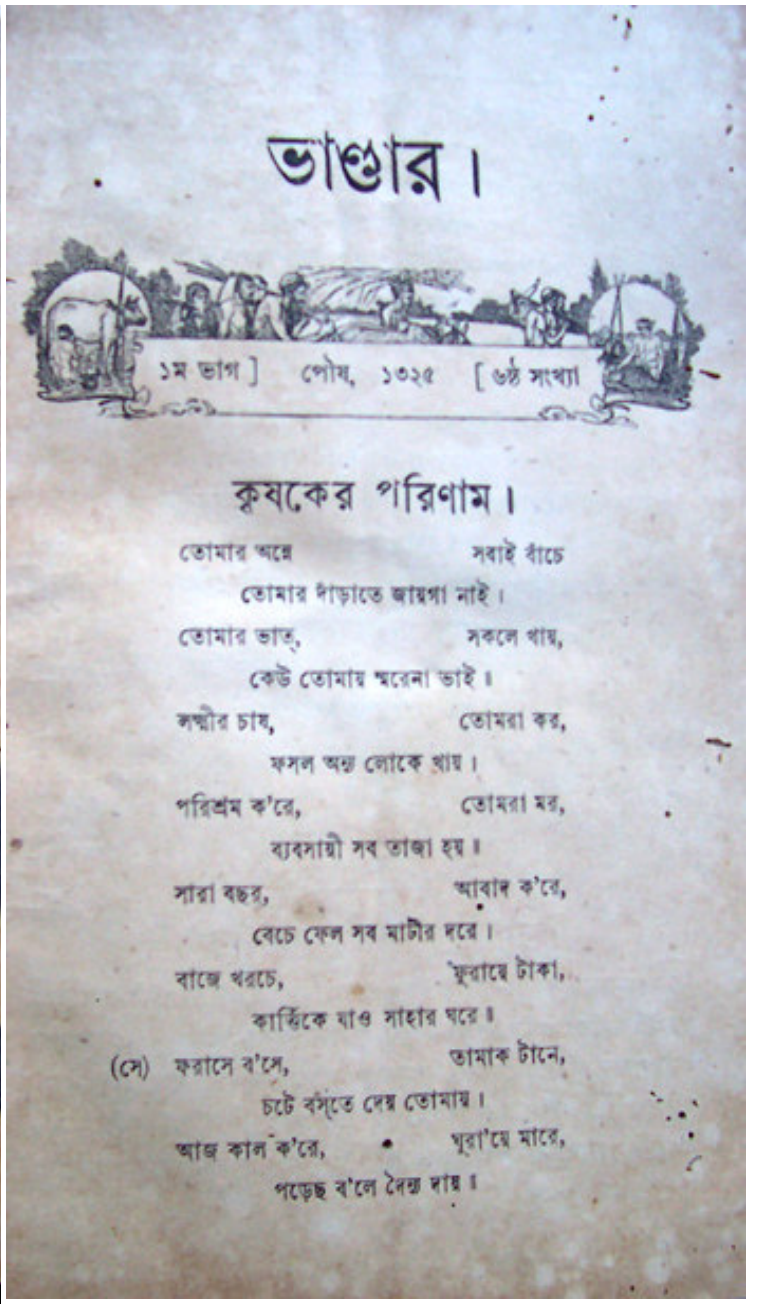 ভাণ্ডার।
১ম ভাগ ] পৌষ, ১৩২৫ [ ৬ষ্ঠ সংখ্যা
কৃষকের পরিণাম।
তোমার অন্নে সবাই বাঁচে
তোমার দাঁড়াতে জায়গা নাই।
তোমার ভাত্, সকলে খায়,
কেউ তোমায় স্মরেনা ভাই॥
লক্ষ্মীর চাষ, তোমরা কর,
ফসল অন্য লোকে খায়।
পরিশ্রম ক'রে, তোমরা মর,
ব্যবসায়ী সব তাজা হয়॥
সারা বছর, আবাদ ক'রে,
বেচে ফেল সব মাটীর দরে।
বাজে খরচে, ফুরায়ে টাকা,
কার্ত্তিকে যাও সাহার ঘরে॥
(সে) ফরাসে ব'সে, তামাক টানে,
চটে বস্‌তে দেয় তোমায়।
আজ কাল ক'রে, ঘুরা'য়ে মারে,
পড়েছ ব'লে দৈন্য দায়॥